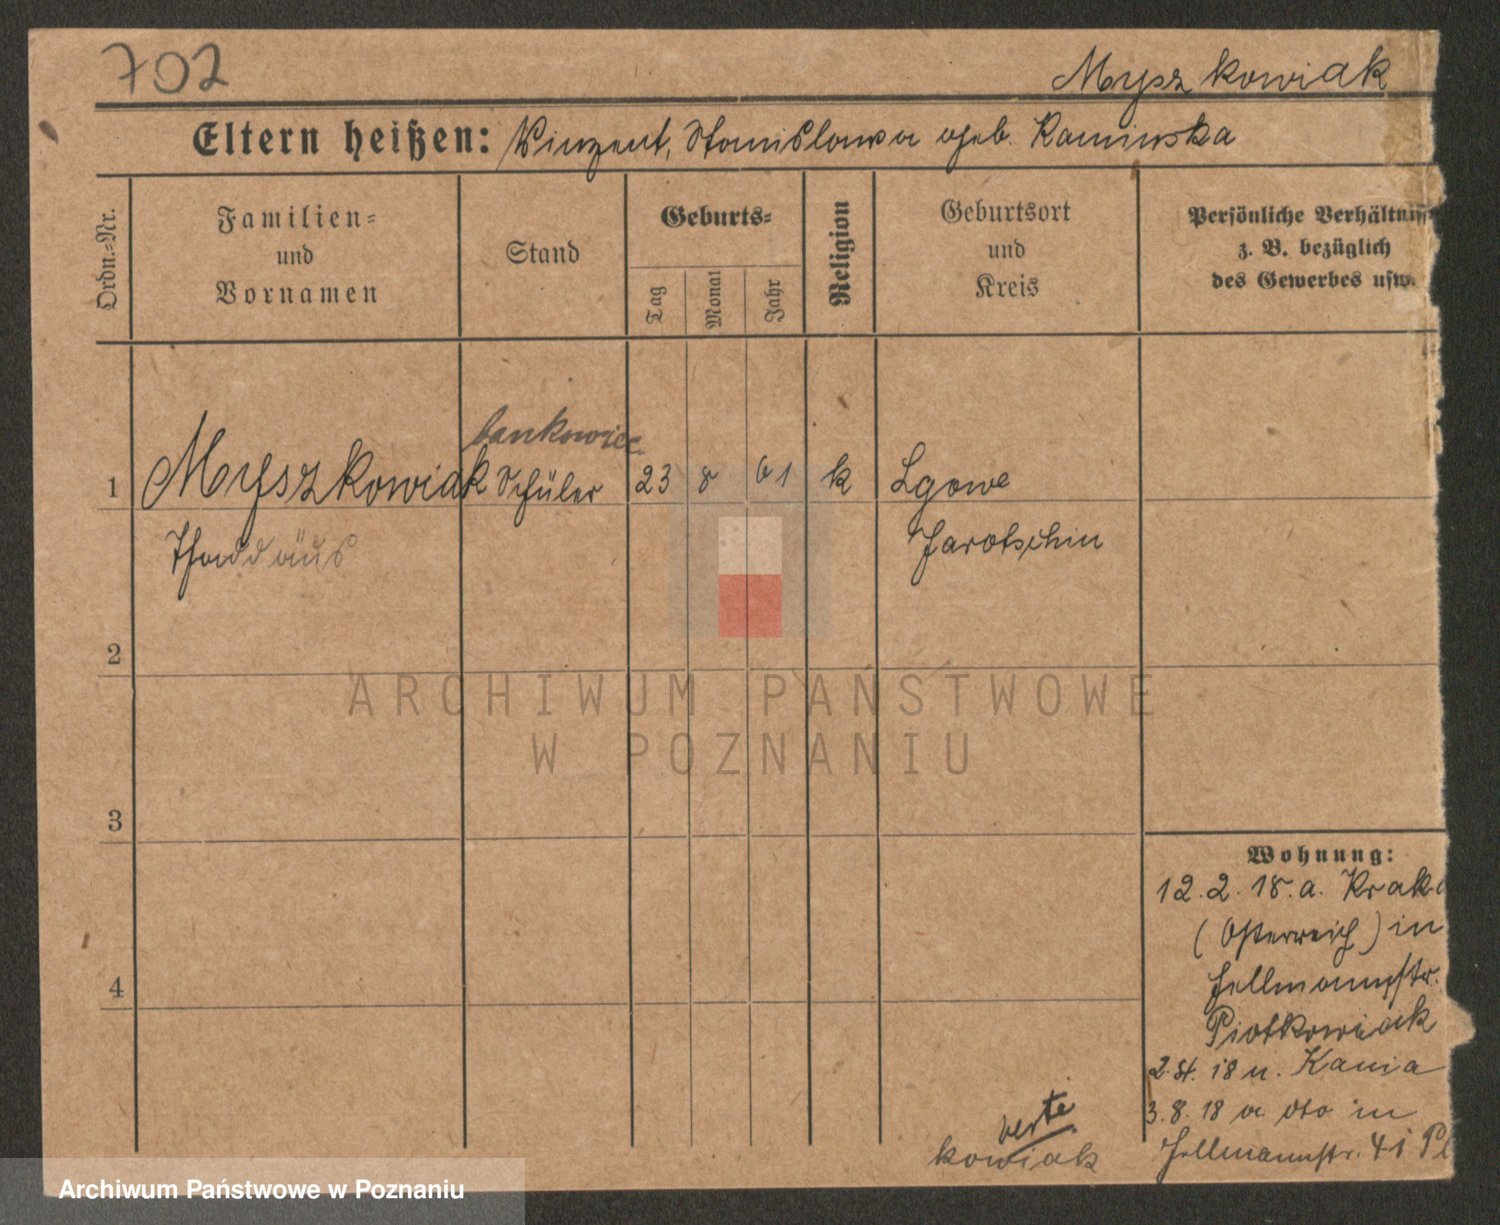 702
Myszkowiak
Eltern heißen: Vinzent, Stanislawa geb. Kaminska
Ordn.=Nr.
Familien=
und
Vornamen
Stand
Geburts=
Tag
Monat
Jahr
Religion
Geburtsort
und
Kreis
Persönliche Verhältniss
z. B. bezüglich
des Gewerbes usw.
bankowiec
1 Myszkowiak Schüler 23 8 01 k Lgowe
Thaddäus Jarotschin
2
ARCHIWUM PAŃSTWOWE
W POZNANIU
3
Wohnung:
12.2.18. a. Krak
(Österreich) in
Hellmannstr.
4
Piotkowiak
18 u. Kania
3.8.18 a dto in
Hellmannstr. 4
kowiak
Archiwum Państwowe w Poznaniu